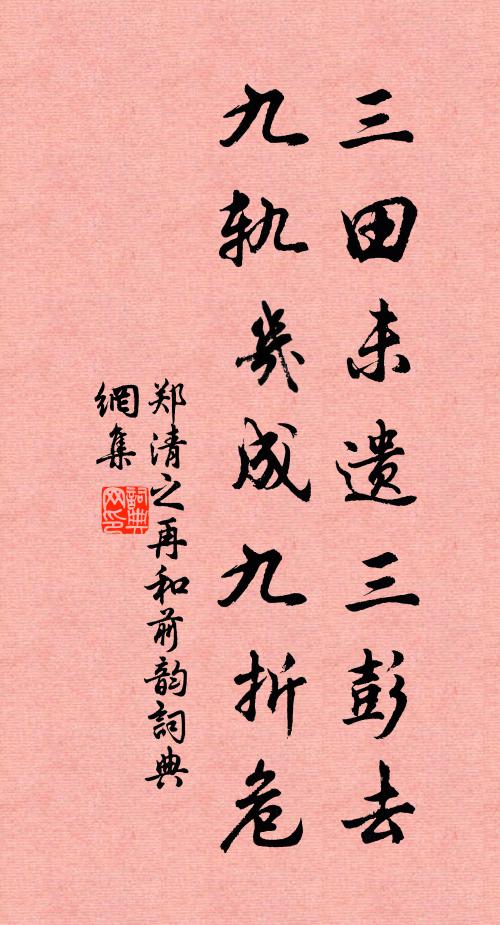 三田未遗三彭去
九轨几成九折危
郑清之再和前韵詞典
網集
詞典
网印